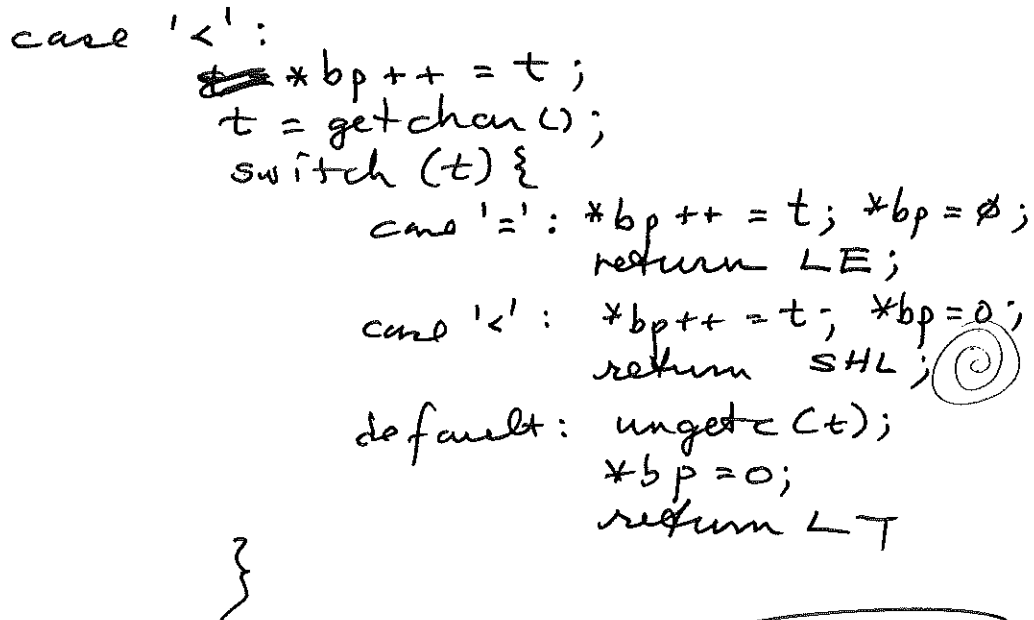 case '<':
*bp++ = t;
t = getchar();
switch (t) {
case '=': *bp++ = t; *bp = ø;
return LE;
case '<': *bp++ = t; *bp = 0;
return SHL;
default: ungetc(t);
*bp = 0;
return LT
}